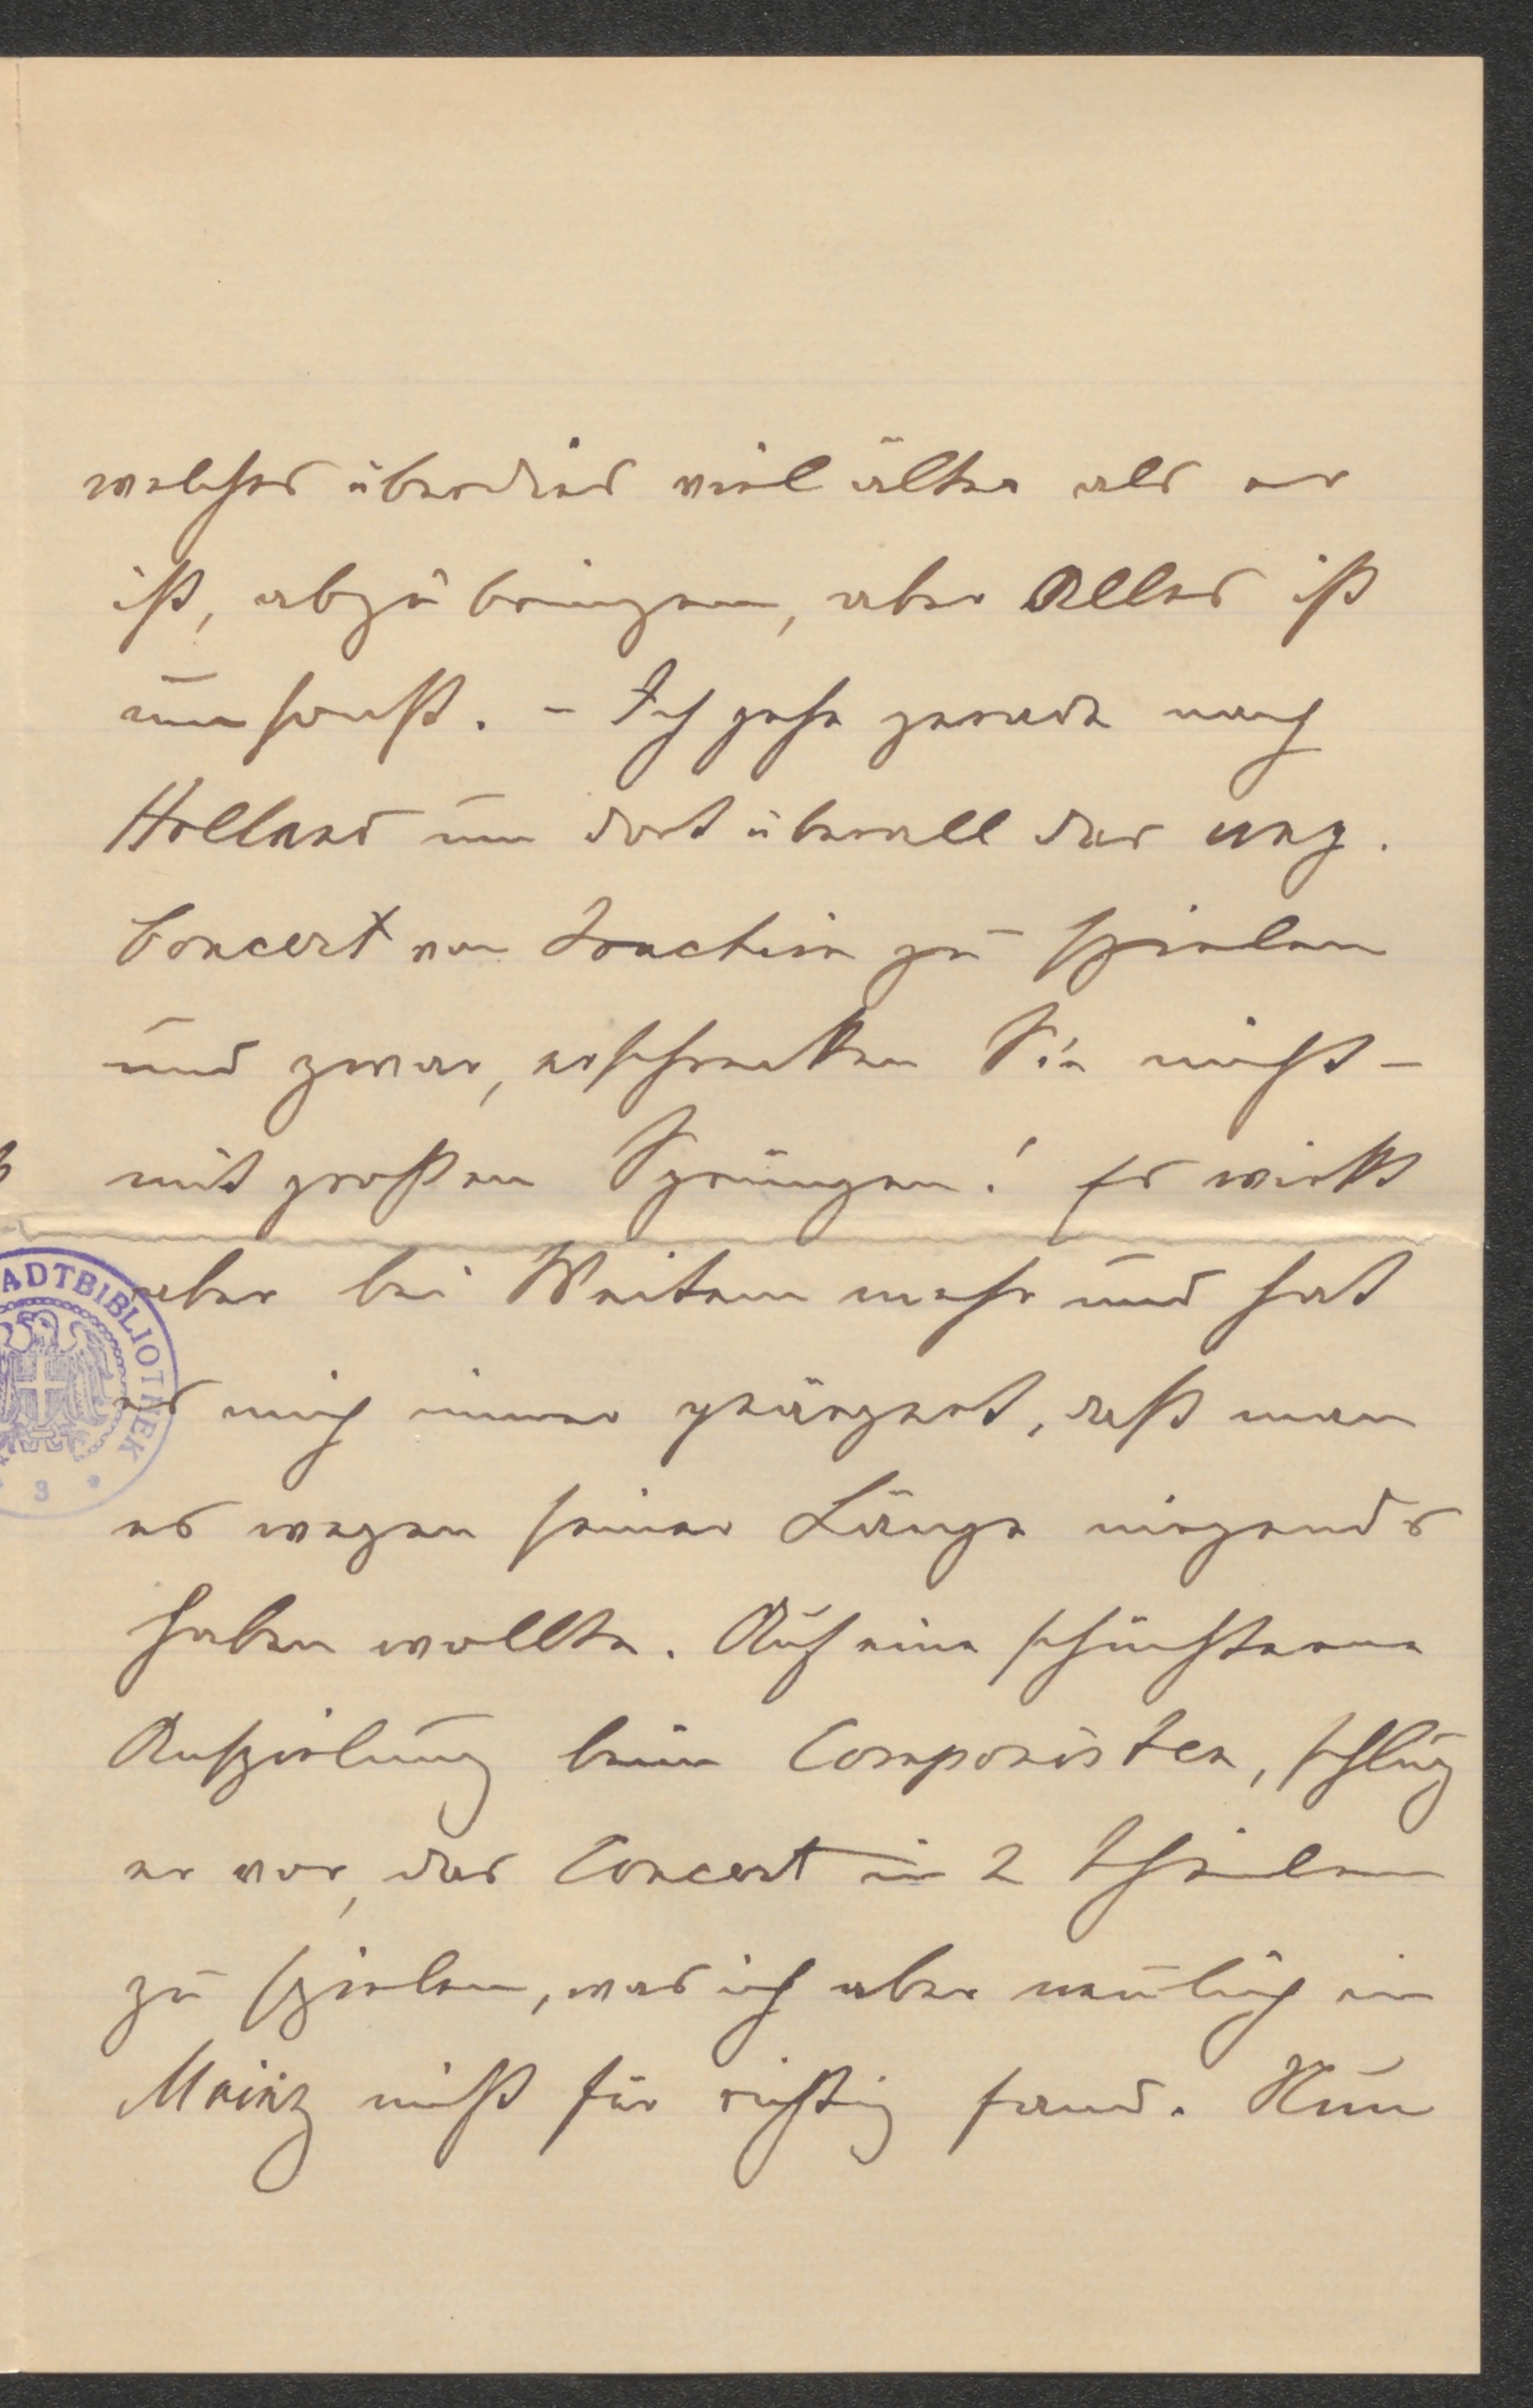 welches überdies viel älter als er
ist, abzubringen, aber Alles ist
umsonst. – Ich gehe gerade nach
Holland um dort überall das ung.
Concert von Joachim zu spielen
und zwar, erschrecken Sie nicht –
mit großen Sprüngen! Es wirkt
aber bei Weitem mehr und hat
es mich immer geärgert, daß man
es wegen seiner Länge nirgends
haben wollte. Auf eine schüchterne
Anspielung beim Componisten, schlug
er vor, das Concert in 2 Theilen
zu spielen, was ich aber neulich in
Mainz nicht für richtig fand. Nun
ADTBIBLIOTHEK
3 *